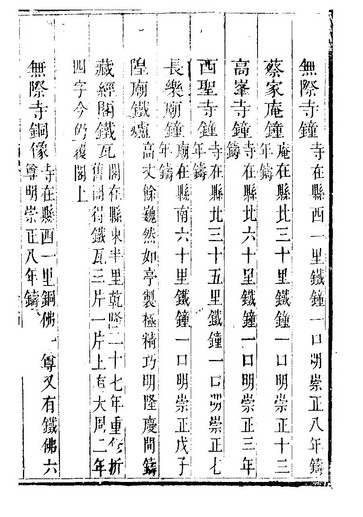 無際寺鐘 寺在縣西一里鐵鐘一口明崇正八年鑄
蔡家庵鐘 庵在縣北三十里鐵鐘一口明崇正十三
年鑄
高峯寺鐘 寺在縣北六十里鐵鐘一口明崇正三年
鑄
西聖寺鐘 寺在縣北三十五里鐵鐘一口明崇正七
年鑄
長樂廟鐘 廟在縣南六十里鐵鐘一口明崇正戊子
年鑄
隍廟鐵爐 高丈餘巍然如亭製極精巧明隆慶間鑄
藏經閣鐵瓦 閣在縣東半里乾隆二十七年重修折
舊閣得鐵瓦三片一片上有大周二年
四字今仍覆閣上
無際寺銅像 寺在縣西一里銅佛一尊又有鐵佛六
尊明崇正八年鑄